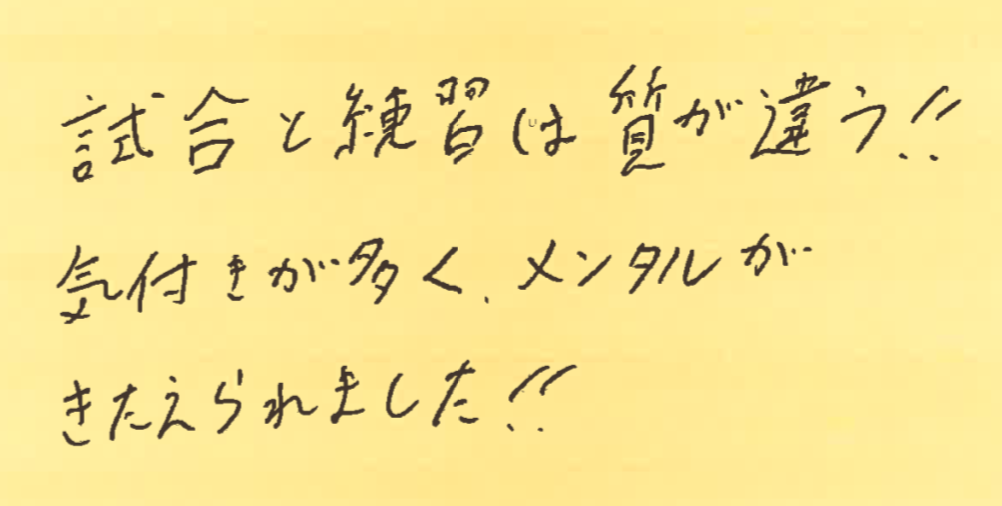 試合と練習は質が違う!!
気付きが多く、メンタルが
きたえられました!!